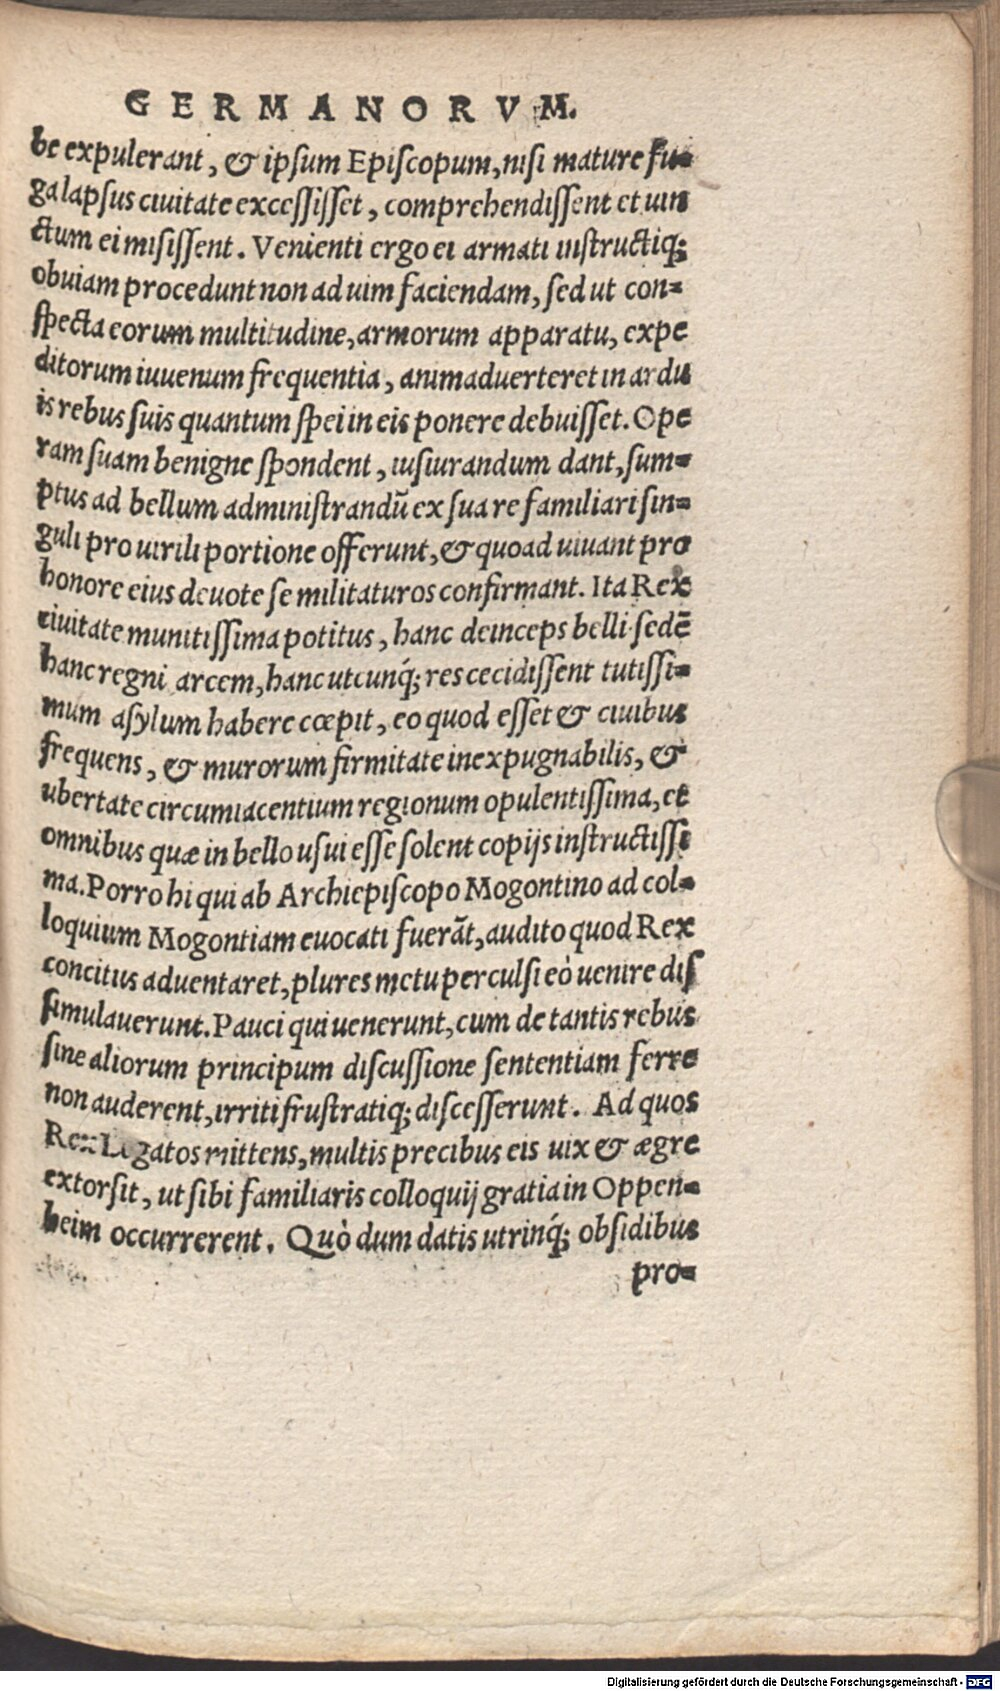 GERMANORVM.
be expulerant, & ipsum Episcopum, nisi mature fu-
ga lapsus ciuitate excessisset, comprehendissent et uin
ctum ei misissent. Venienti ergo ei armati instructiq;
obuiam procedunt non ad uim faciendam, sed ut con-
specta eorum multitudine, armorum apparatu, expe
ditorum iuuenum frequentia, animaduerteret in ardu
is rebus suis quantum spei in eis ponere debuisset. Ope
ram suam benigne spondent, iusiurandum dant, sum-
ptus ad bellum administrandũ ex sua re familiari sin-
guli pro uirili portione offerunt, & quoad uiuant pro
honore eius deuote se militaturos confirmant. Ita Rex
ciuitate munitissima potitus, hanc deinceps belli sedẽ
hanc regni arcem, hanc utcunq́; res cecidissent tutissi-
mum asylum habere cœpit, eo quod esset & ciuibus
frequens, & murorum firmitate inexpugnabilis, &
ubertate circumiacentium regionum opulentissima, et
omnibus quæ in bello usui esse solent copijs instructissi
ma. Porro hi qui ab Archiepiscopo Mogontino ad col-
loquium Mogontiam euocati fuerãt, audito quod Rex
concitus aduentaret, plures metu perculsi eò uenire dis
simulauerunt. Pauci qui uenerunt, cum de tantis rebus
sine aliorum principum discussione sententiam ferre
non auderent, irriti frustratiq; discesserunt. Ad quos
Rex Legatos mittens, multis precibus eis uix & ægre
extorsit, ut sibi familiaris colloquij gratia in Oppen-
heim occurrerent. Quò dum datis utrinq́; obsidibus
pro-
Digitalisierung gefördert durch die Deutsche Forschungsgemeinschaft - DFG